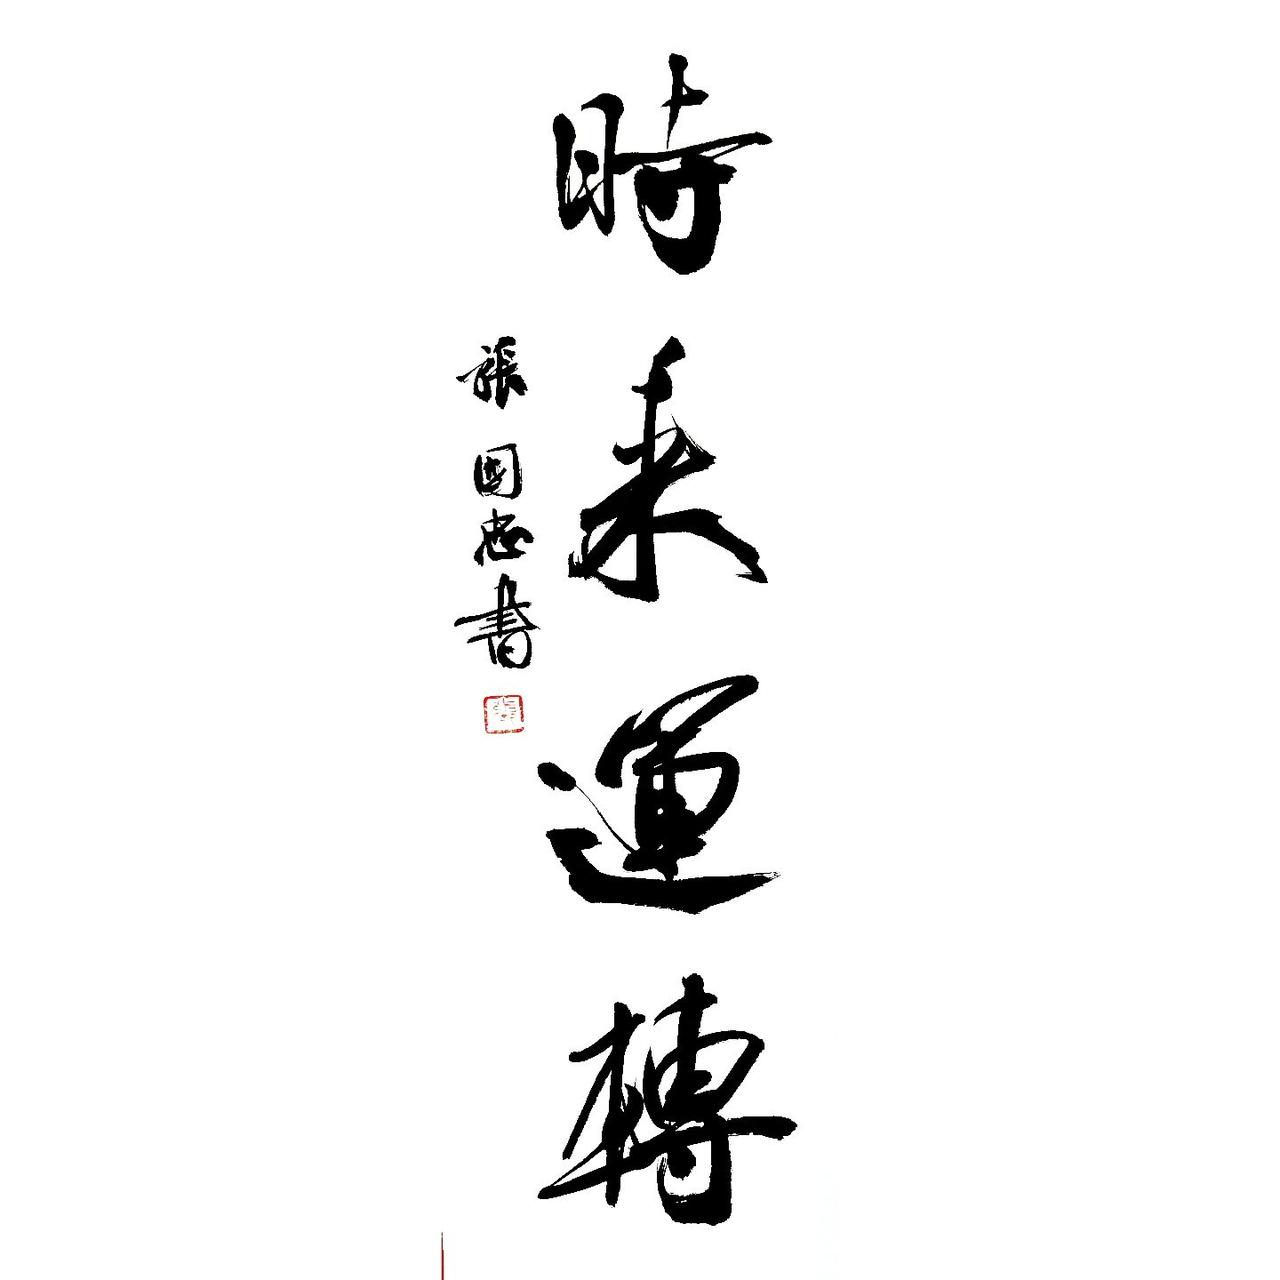 時来運轉
張國忠書